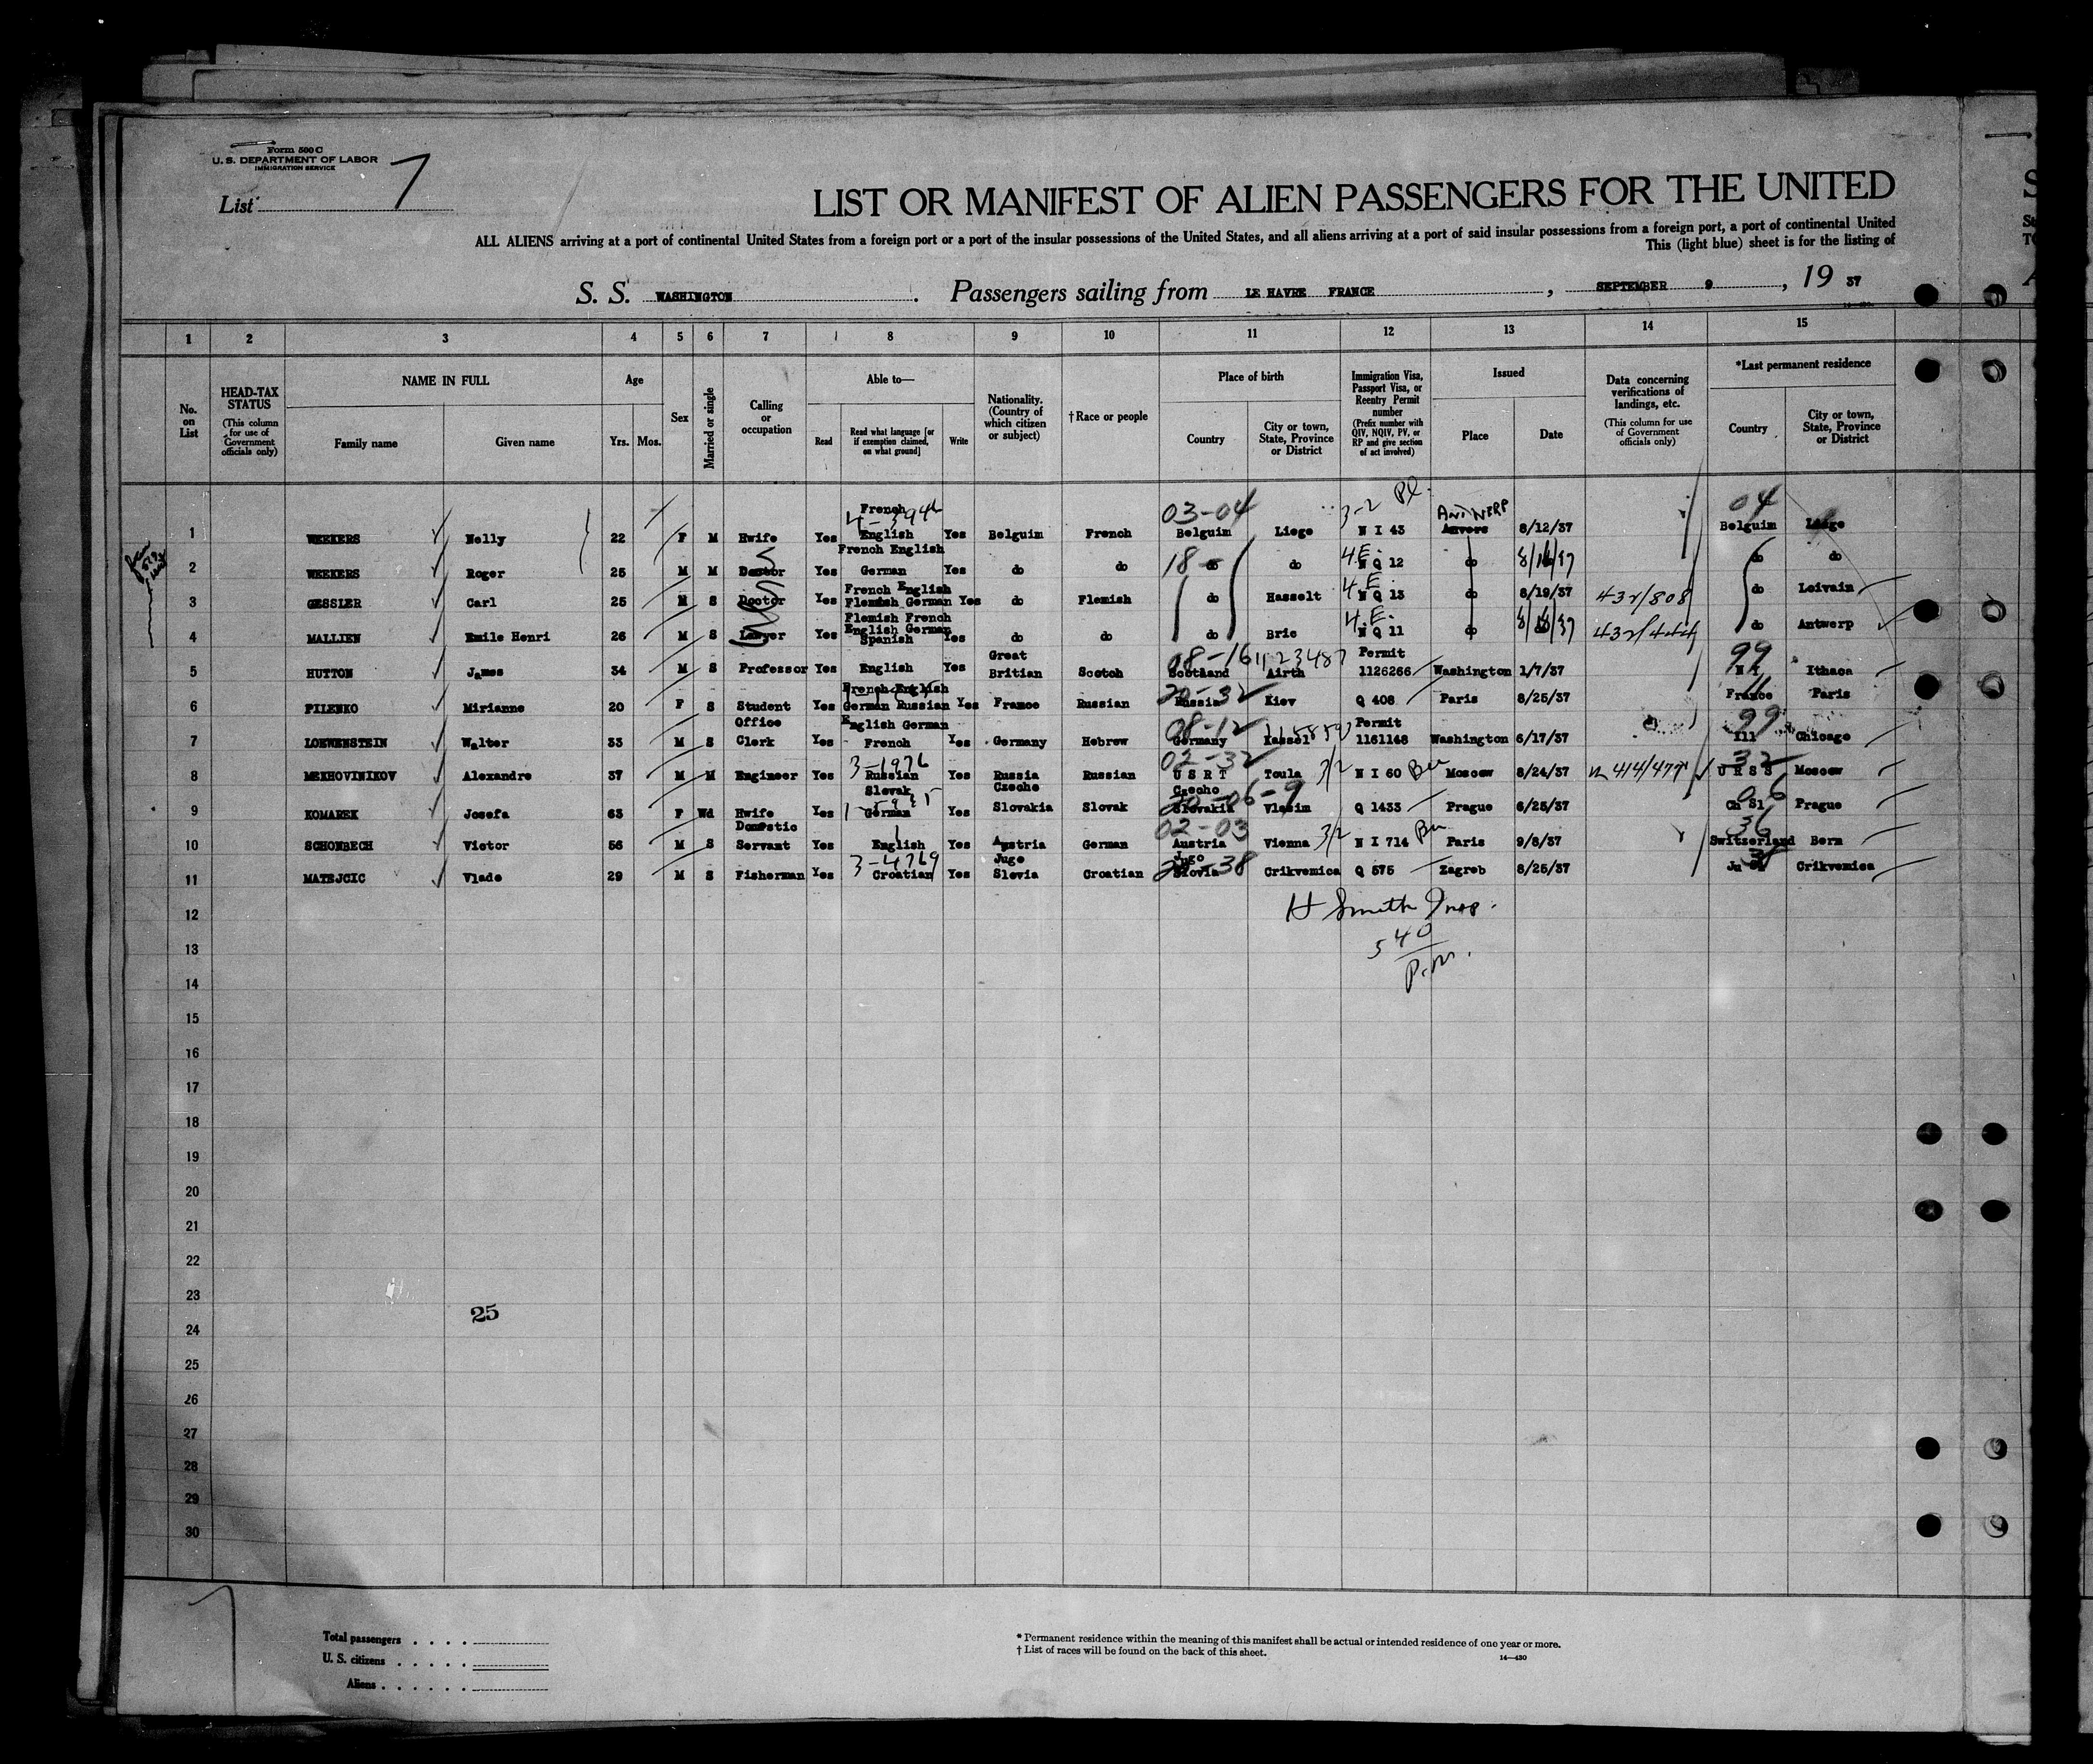 Form 500 C
U. S. DEPARTMENT OF LABOR
IMMIGRATION SERVICE
List 7
LIST OR MANIFEST OF ALIEN PASSENGERS FOR THE UNITED
ALL ALIENS arriving at a port of continental United States from a foreign port or a port of the insular possessions of the United States, and all aliens arriving at a port of said insular possessions from a foreign port, a port of continental United
This (light blue) sheet is for the listing of
S. S. WASHINGTON . Passengers sailing from LE HAVRE FRANCE , SEPTEMBER 9 , 19 37
1 2 3 4 5 6 7 8 9 10 11 12 13 14 15
No. on List
HEAD-TAX STATUS (This column for use of Government officials only)
NAME IN FULL Family name Given name
Age Yrs. Mos.
Sex
Married or single
Calling or occupation
Able to— Read Read what language [or if exemption claimed, on what ground] Write
Nationality. (Country of which citizen or subject)
† Race or people
Place of birth Country City or town, State, Province or District
Immigration Visa, Passport Visa, or Reentry Permit number (Prefix number with QIV, NQIV, PV, or RP and give section of act involved)
Issued Place Date
Data concerning verifications of landings, etc. (This column for use of Government officials only)
*Last permanent residence Country City or town, State, Province or District
1 WEEKERS Nelly 22 F M Hwife Yes French English 4-3946 Yes Belguim French 03-04 Belguim Liege 3-2 Pl. N I 43 Anvers ANTWERP 8/12/37 04 Belguim Liege
2 WEEKERS Roger 25 M M Doctor Yes French English German Yes do do 18- do do 4E. N Q 12 do 8/16/37 do do
3 GESSLER Carl 25 M S Doctor Yes French English Flemish German Yes do Flemish do Hasselt 4.E. N Q 13 do 8/19/37 432/808 do Loivain
4 MALLIEN Emile Henri 26 M S Lawyer Yes Flemish French English German Spanish Yes do do do Bric 4.E. N Q 11 do 8/18/37 432/444 do Antwerp
5 HUTTON James 34 M S Professor Yes English Yes Great Britian Scotch 08-16 Scotland Airth 1123487 Permit 1126266 Washington 1/7/37 99 N Y Ithaca
6 PILENKO Mirianne 20 F S Student Yes French English German Russian Yes France Russian 20-32 Russia Kiev Q 408 Paris 8/25/37 France Paris
7 LOEWENSTEIN Walter 33 M S Office Clerk Yes English German French Yes Germany Hebrew 08-12 Germany Kassel Permit 1161148 Washington 6/17/37 99 Ill Chicago
8 MEKHOVINIKOV Alexandre 37 M M Engineer Yes 3-1976 Russian Yes Russia Russian 02-32 U S R T Toula 3/2 N I 60 Moscow 8/24/37 414/477 32 U R S S Moscow
9 KOMAREK Josefa 63 F Wd Hwife Yes Slovak German Yes Czecho Slovakia Slovak Czecho Slovakia Vlasim Q 1433 Prague 6/25/37 06 Ch Sl Prague
10 SCHONBECH Victor 56 M S Domestic Servant Yes English Yes Austria German 02-03 Austria Vienna 3/2 N I 714 Paris 9/8/37 36 Switzerland Bern
11 MATEJCIC Vlade 29 M S Fisherman Yes 3-4769 Croatian Yes Jugo Slovia Croatian Jugo Slovia Crikvenica Q 575 Zagreb 8/25/37 Ju Sl Crikvenica
12 H Smith Insp.
13 5 40
14 P.M.
15
16
17
18
19
20
21
22
23
25
24
25
26
27
28
29
30
Total passengers . . . .
U. S. citizens . . . . .
Aliens . . . . . .
* Permanent residence within the meaning of this manifest shall be actual or intended residence of one year or more.
† List of races will be found on the back of this sheet.
14—430